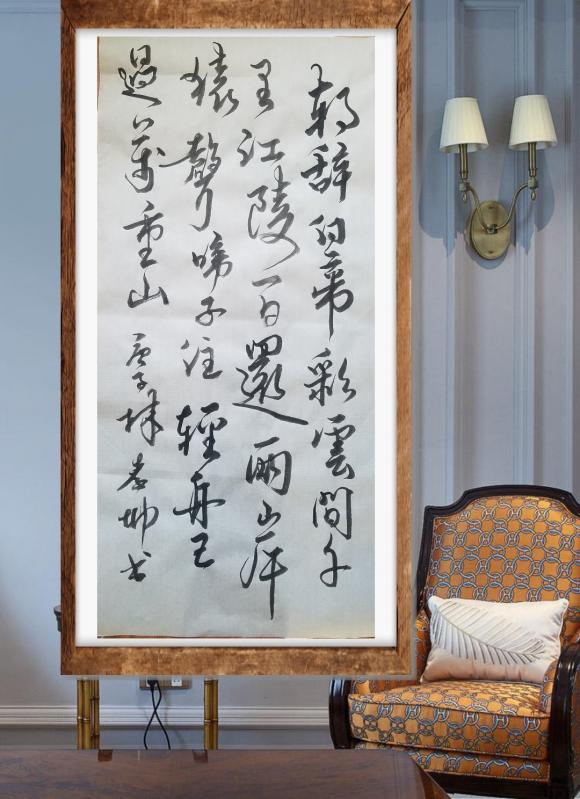 朝辞白帝彩雲間千
里江陵一日還兩岸
猿聲啼不住輕舟已
過萬重山 庚子 书